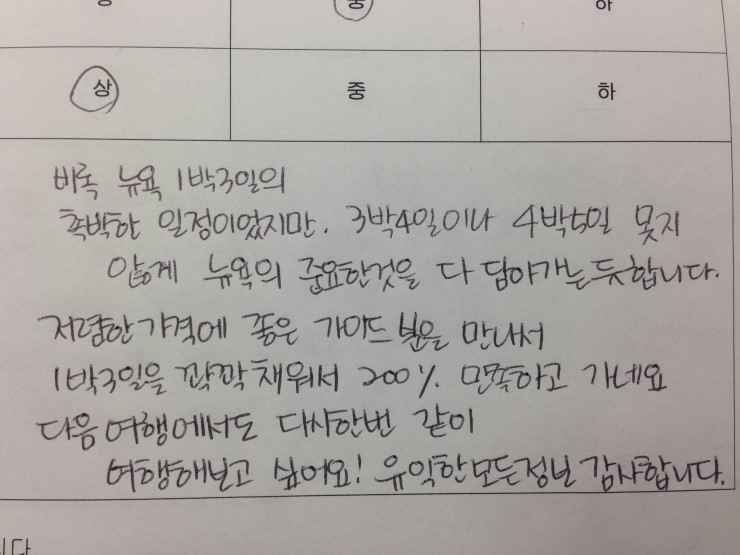 중 하
상 중 하
비록 뉴욕 1박3일의
촉박한 일정이었지만, 3박4일이나 4박5일 못지
않게 뉴욕의 중요한것을 다 담아가는듯합니다.
저렴한 가격에 좋은 가이드 분을 만나서
1박3일을 꽉꽉 채워서 200% 만족하고 가네요
다음 여행에서도 다시한번 같이
여행해보고 싶어요! 유익한 모든정보 감사합니다.
니다